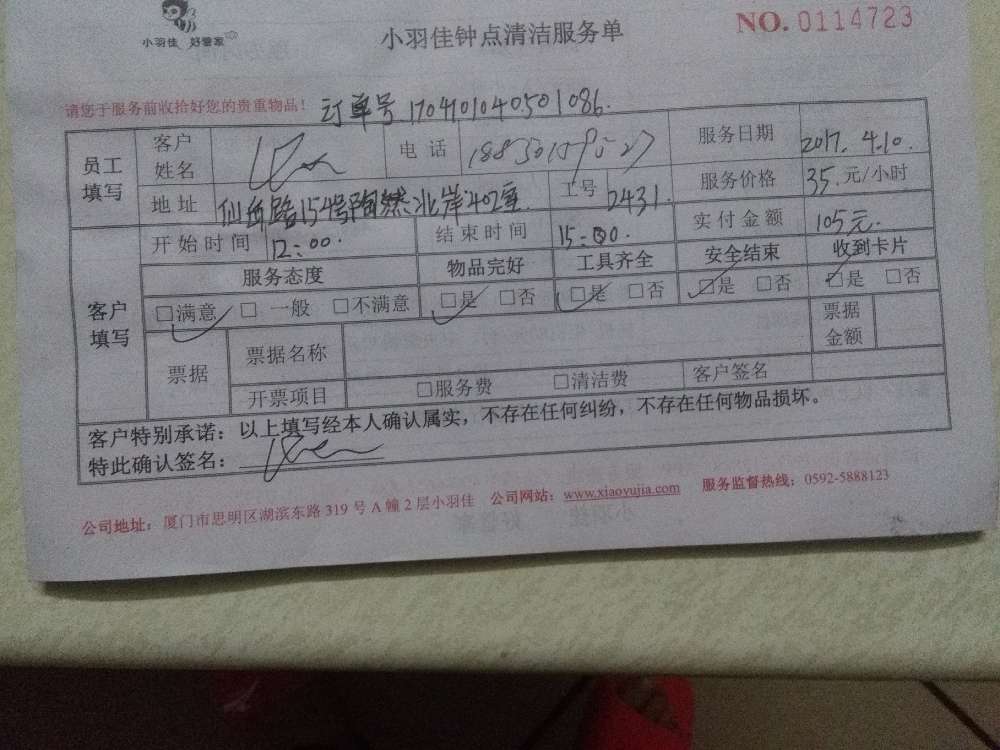 小羽佳 好管家
小羽佳钟点清洁服务单
NO. 0114723
请您于服务前收拾好您的贵重物品！ 订单号 1704101040501086.
员工填写 客户姓名 电 话 服务日期 2017. 4.10.
地 址 仙岳路154号陶然北岸402室. 工号 2431. 服务价格 35. 元/小时
客户填写 开始时间 12:00. 结束时间 15:00. 实付金额 105元.
服务态度 物品完好 工具齐全 安全结束 收到卡片
□满意 □ 一般 □不满意 □是 □否 □是 □否 □是 □否 □是 □否
票据 票据名称 票据金额
开票项目 □服务费 □清洁费 客户签名
客户特别承诺：以上填写经本人确认属实，不存在任何纠纷，不存在任何物品损坏。
特此确认签名：
公司地址：厦门市思明区湖滨东路 319 号 A 幢 2 层小羽佳 公司网站：www.xiaoyujia.com 服务监督热线：0592-5888123